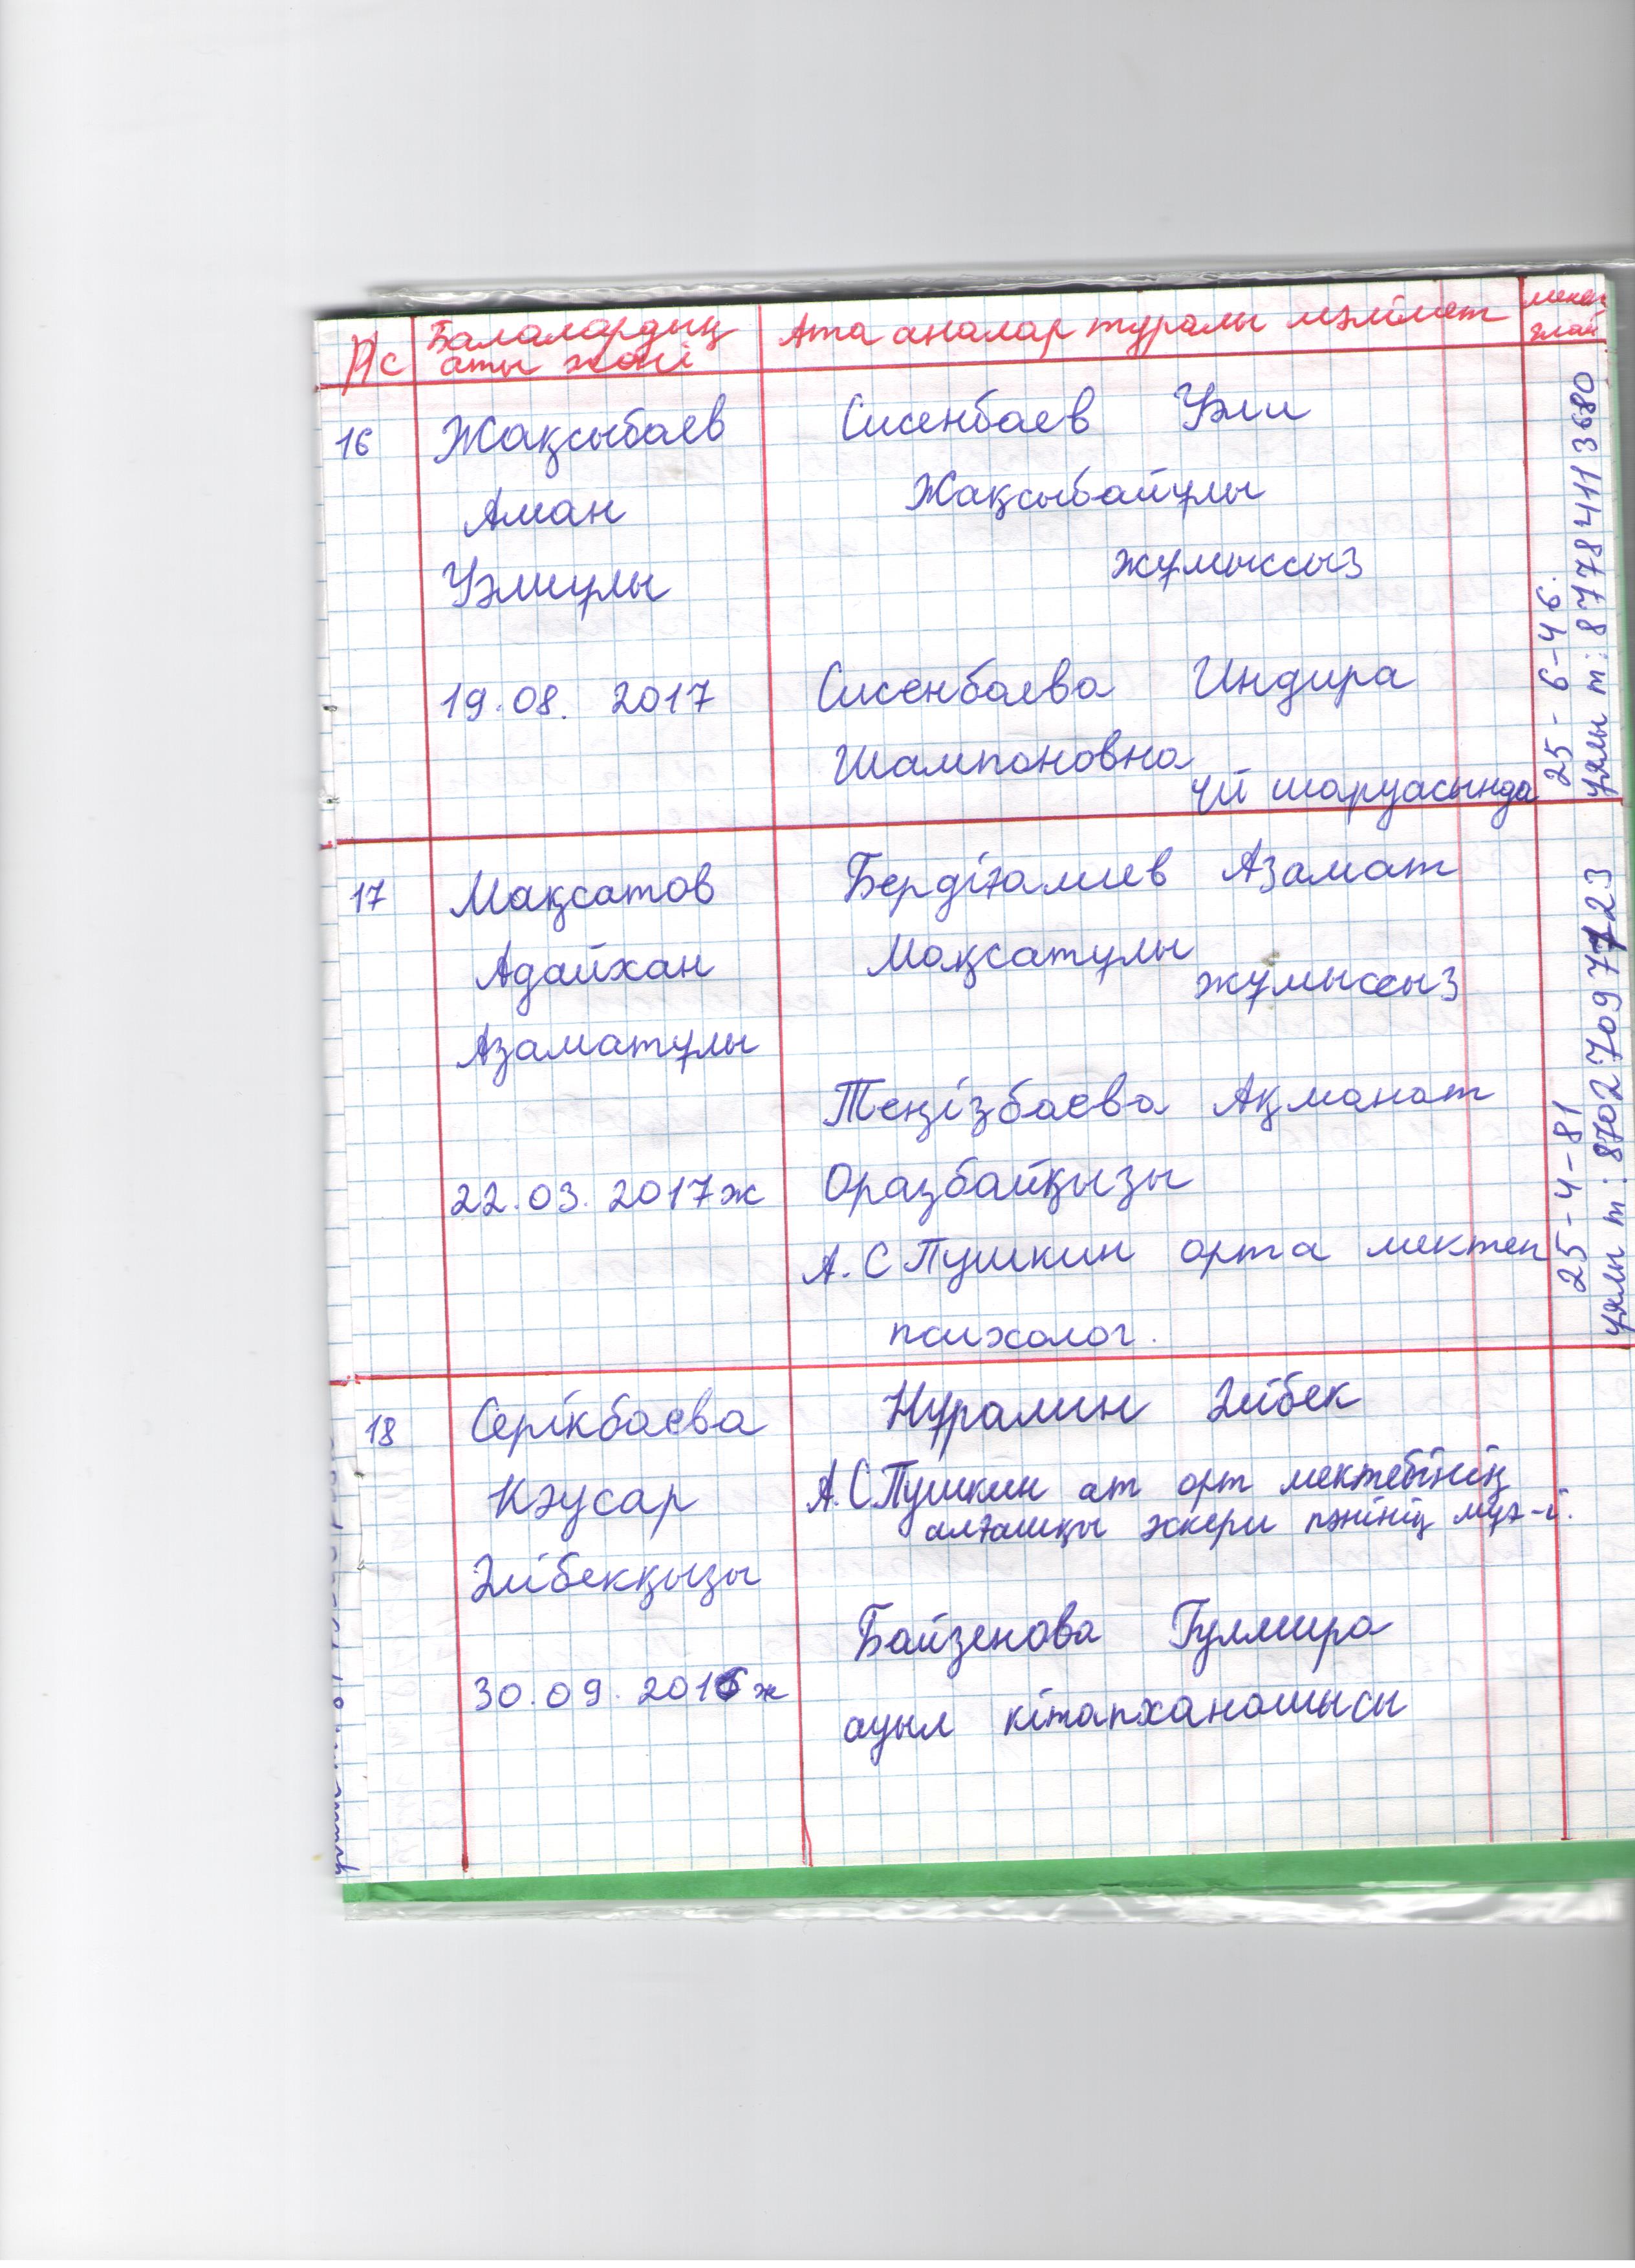 Р/с
Балалардың
аты жөні
Ата аналар туралы мәлімет
мекен
жай
16
Жақсыбаев
Аман
Уәлиұлы
19.08. 2017
Сисенбаев Уәли
Жақсыбайұлы
жұмыссыз
Сисенбаева Индира
Шампоновна
үй шаруасында
25-6-46.
ұялы т: 87784113680
17
Мақсатов
Адайхан
Азаматұлы
22.03. 2017ж
Бердіғалиев Азамат
Мақсатұлы
жұмыссыз
Теңізбаева Ақманат
Оразбайқызы
А.С Пушкин орта мектеп
психолог.
25-4-81
ұялы т: 87027097723
18
Серікбаева
Кәусар
Әлібекқызы
30.09. 2016ж
Нұралин Әлібек
А.С Пушкин ат орт мектебінің
алғашқы әскери пәнінің мұғ-і.
Байзенова Гүлмира
ауыл кітапханашысы